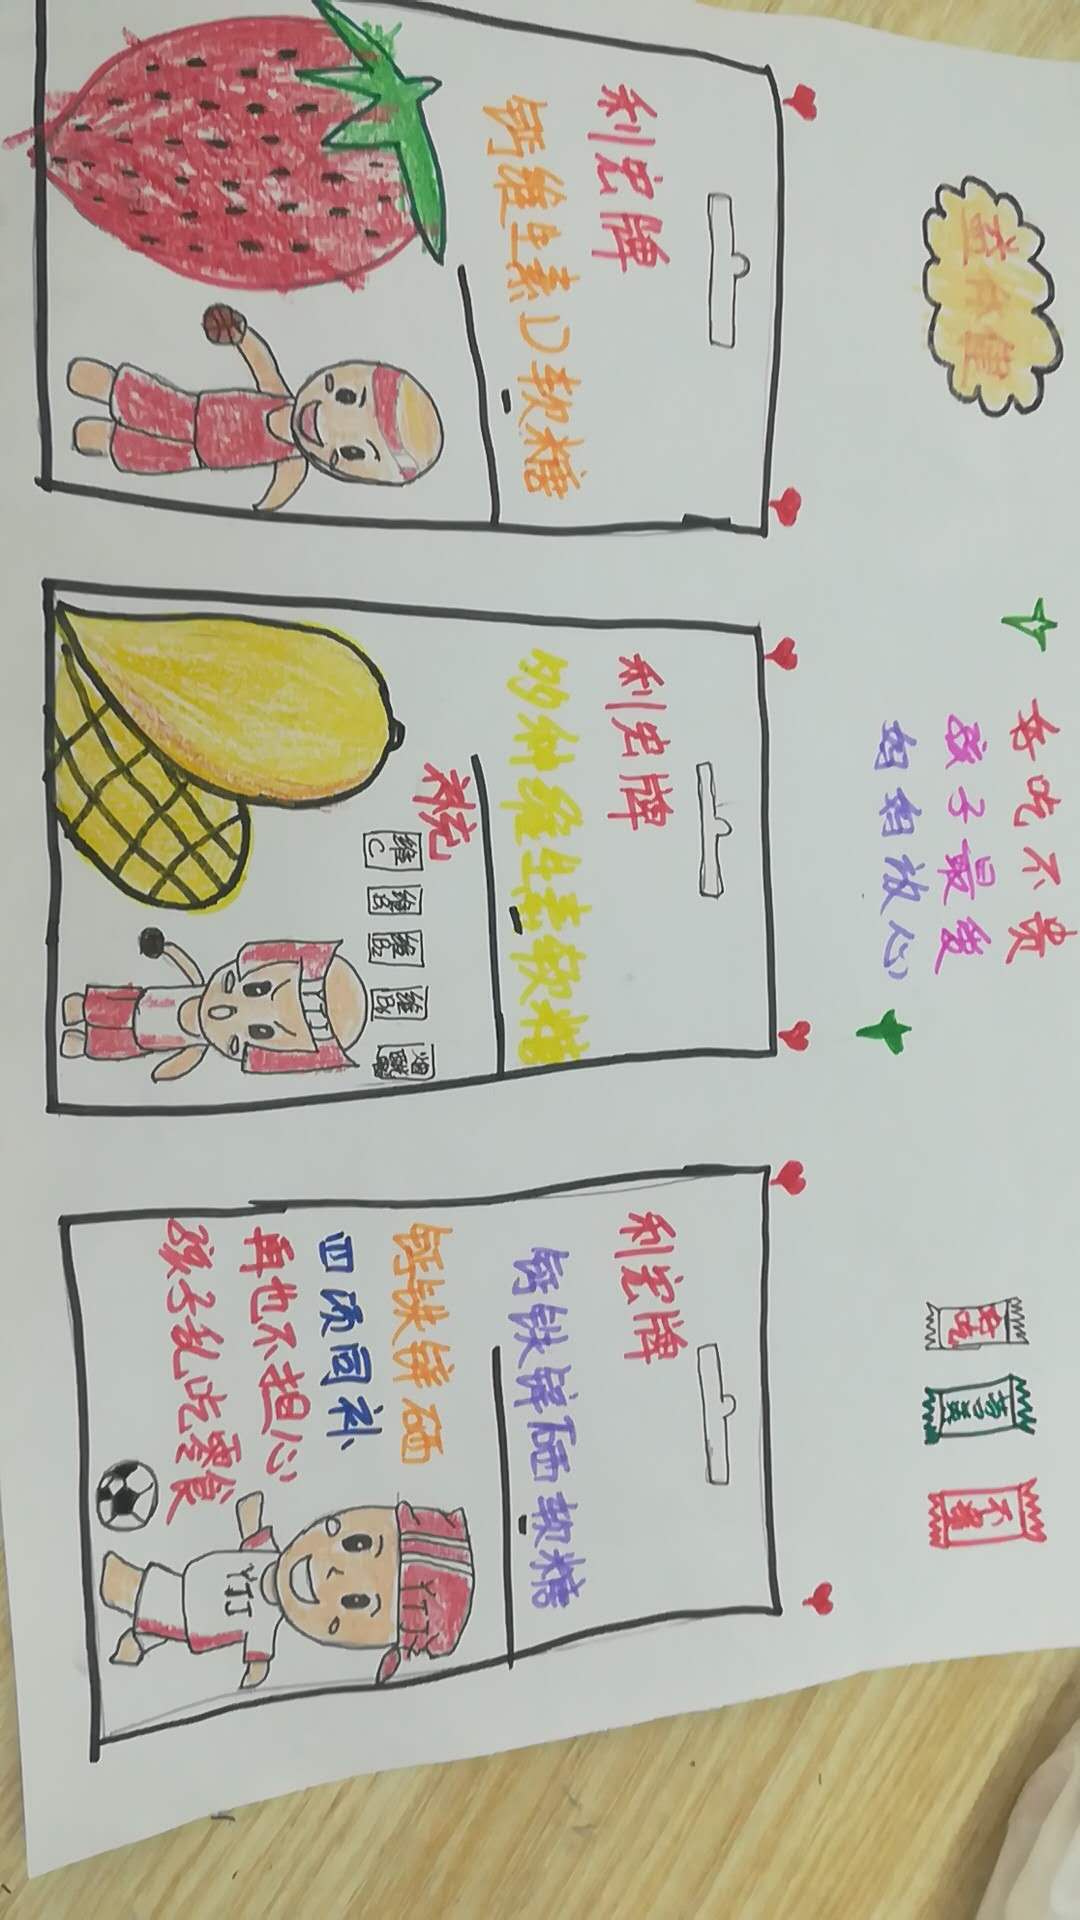 益体健
吃不贵
孩子最爱
放心
利宏牌
钙维生素D软糖
利宏牌
多种维生素软糖
补充
维C
维B2
维B6
利宏牌
钙铁锌硒软糖
钙铁锌硒
四项同补
再也不担心
孩子乱吃零食
YTJ
YTJ
YTJ